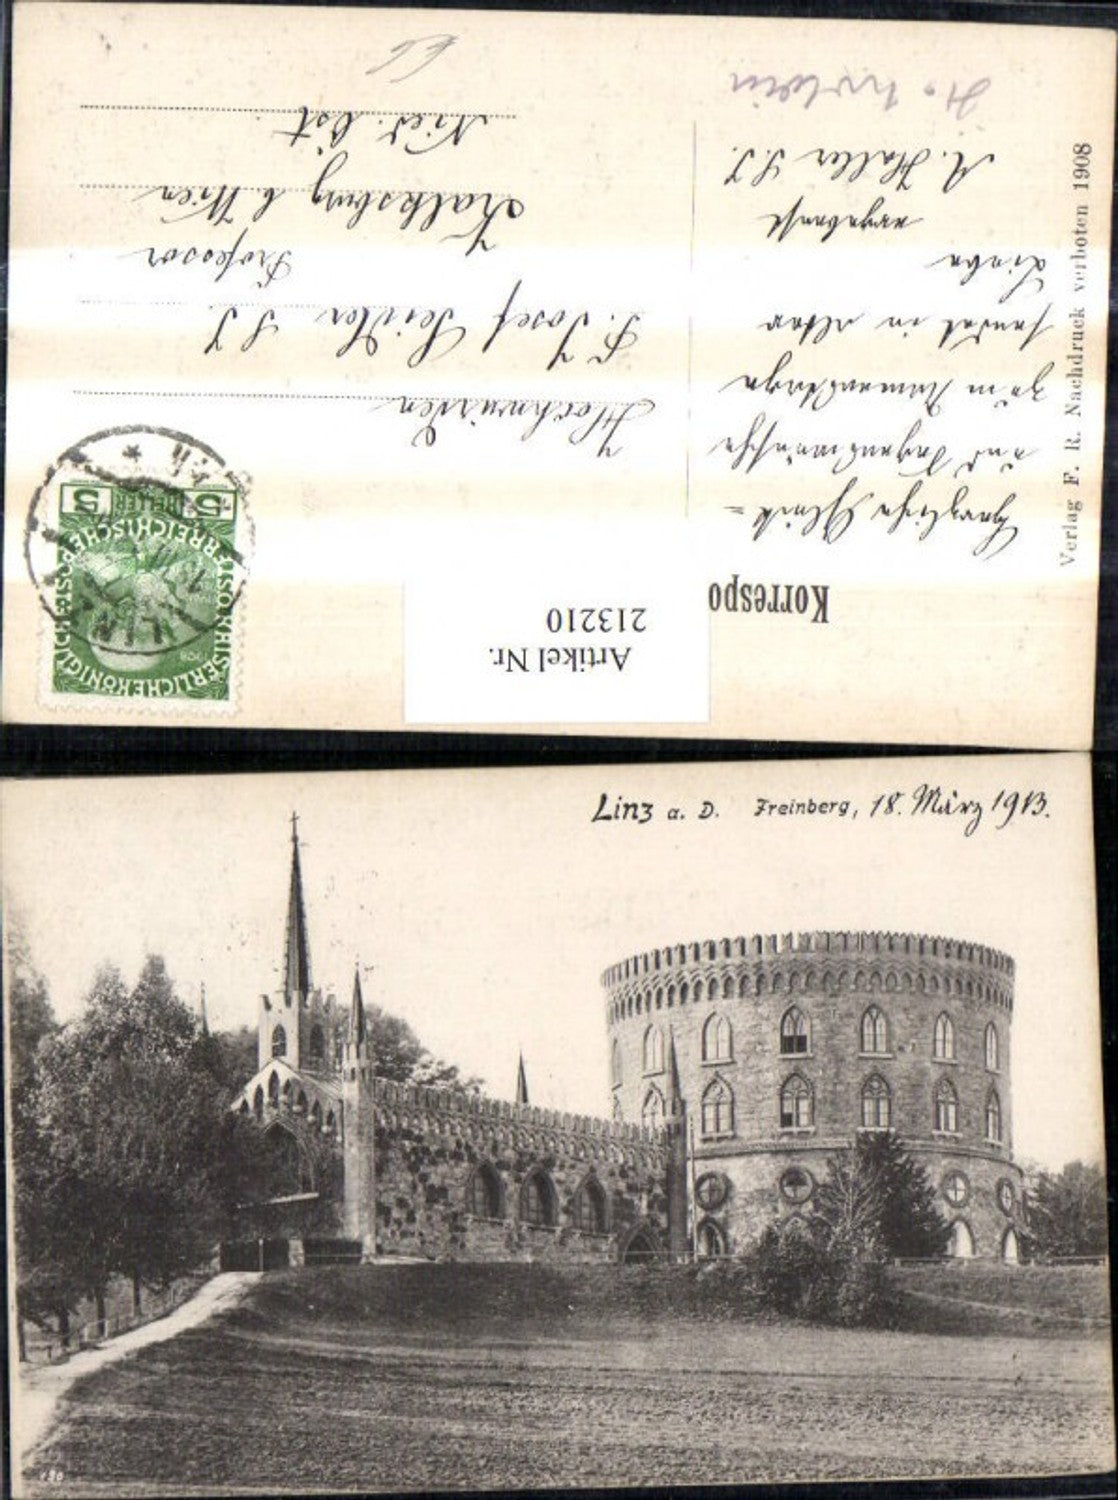 Korrespo
Artikel Nr.
213210
Herzliche Glück-
und Segenswünsche
zum Namenstage
sendet in alter
Liebe
ergebenst
A. Haller S.J.
Verlag F. R. Nachdruck verboten 1908
Hochwürden
P. Josef Seidler S.J.
Professor
Kalksburg b. Wien
Nied. Öst.
KAISERLICHEKÖNIGLICHE
ÖSTERREICHISCHEPOST
5 HELLER 5
1908
LINZ
Linz a. D. Freinberg, 18. März 1913.
130